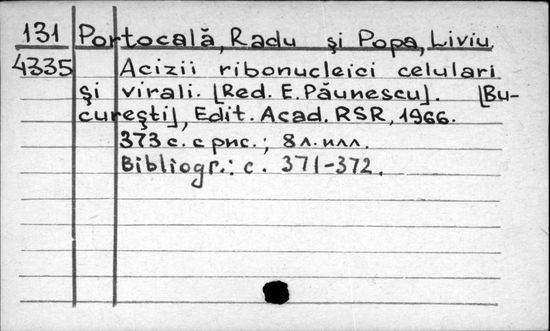 131 Portocală, Radu și Popa, Liviu
4335 Acizii ribonucleici celulari
și virali. [Red. E. Păunescu]. [Bu-
curești], Edit. Acad. RSR, 1966.
373 с. с рис.; 8 л. илл.
Bibliogr.: с. 371-372.